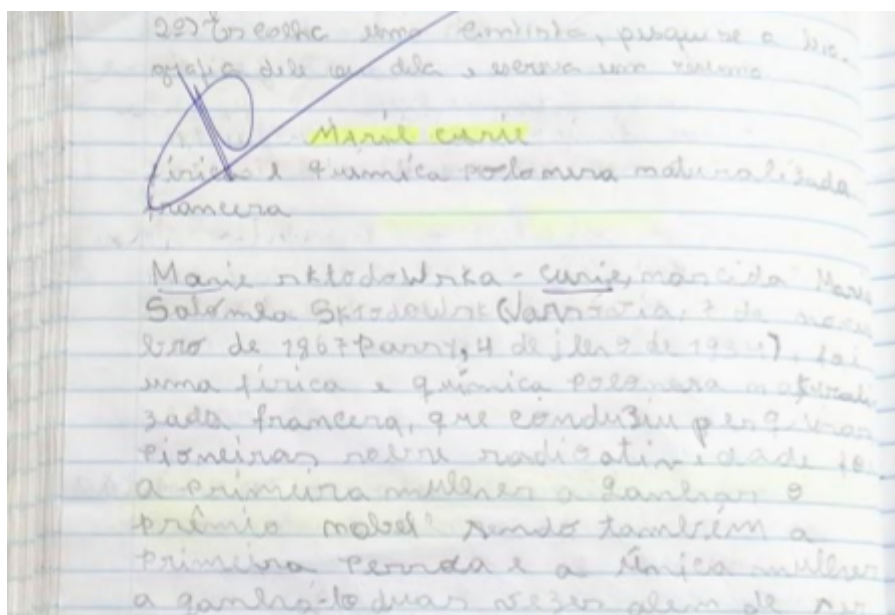 2º) Escolha uma cientista, pesquise a bio-
grafia dele ou dela e escreva um resumo
Marie Curie
física e química polonesa naturalizada
francesa
Marie Skłodowska - Curie, nascida Maria
Salomea Skłodowsk (Varsóvia, 7 de novem
bro de 1867 Parry, 4 de de 1934), foi
uma física e química polonesa naturali
zada francesa, que conduziu pesquisas
pioneiras sobre radioatividade foi
a primeira mulher a ganhar o
prêmio nobel sendo também a
primeira pessoa e a única mulher
a ganhá-lo duas vezes alem de ser